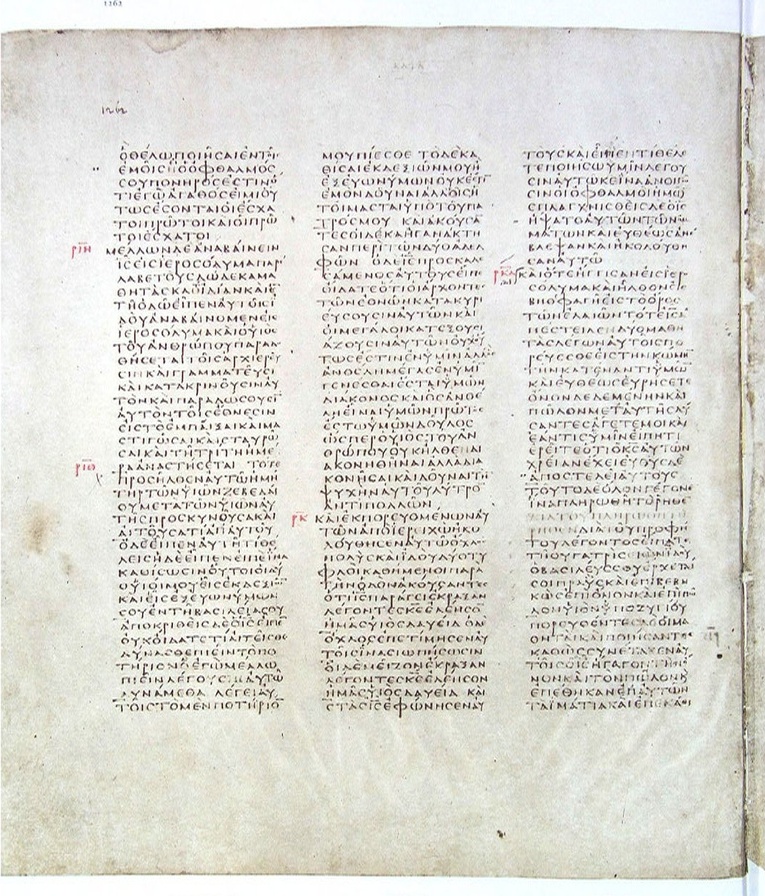 1262
ΟΘΕΛΩΠΟΙΗCΑΙΕΝΤΟΙC
ΕΜΟΙCΗΟΟΦΘΑΛΜΟC
CΟΥΠΟΝΗΡΟCΕCΤΙΝΟ
ΤΙΕΓΩΑΓΑΘΟCΕΙΜΙΟΥ
ΤΩCΕCΟΝΤΑΙΟΙΕCΧΑ
ΤΟΙΠΡΩΤΟΙΚΑΙΟΙΠΡΩ
ΤΟΙΕCΧΑΤΟΙ
ΡΙΗ ΜΕΛΛΩΝΔΕΑΝΑΒΑΙΝΕΙΝ
ΙCΕΙCΙΕΡΟCΟΛΥΜΑΠΑΡΕ
ΛΑΒΕΤΟΥCΔΩΔΕΚΑΜΑ
ΘΗΤΑCΚΑΤΙΔΙΑΝΚΑΙΕΝ
ΤΗΟΔΩΕΙΠΕΝΑΥΤΟΙCΙ
ΔΟΥΑΝΑΒΑΙΝΟΜΕΝΕΙC
ΙΕΡΟCΟΛΥΜΑΚΑΙΟΥΙΟC
ΤΟΥΑΝΘΡΩΠΟΥΠΑΡΑΔΟ
ΘΗCΕΤΑΙΤΟΙCΑΡΧΙΕΡΕΥ
CΙΝΚΑΙΓΡΑΜΜΑΤΕΥCΙ
ΚΑΙΚΑΤΑΚΡΙΝΟΥCΙΝΑΥ
ΤΟΝΚΑΙΠΑΡΑΔΩCΟΥCΙ
ΑΥΤΟΝΤΟΙCΕΘΝΕCΙΝ
ΕΙCΤΟΕΜΠΑΙΞΑΙΚΑΙΜΑ
CΤΙΓΩCΑΙΚΑΙCΤΑΥΡΩ
CΑΙΚΑΙΤΗΤΡΙΤΗΗΜΕ
ΡΙΘ ΡΑΑΝΑCΤΗCΕΤΑΙ ΤΟΤΕ
ΠΡΟCΗΛΘΕΝΑΥΤΩΗΜΗ
ΤΗΡΤΩΝΥΙΩΝΖΕΒΕΔΑΙ
ΟΥΜΕΤΑΤΩΝΥΙΩΝΑΥ
ΤΗCΠΡΟCΚΥΝΟΥCΑΚΑΙ
ΑΙΤΟΥCΑΤΙΑΠΑΥΤΟΥ
ΟΔΕΕΙΠΕΝΑΥΤΗΤΙΘΕ
ΛΕΙCΗΔΕΕΙΠΕΝΕΙΠΕΙΝΑ
ΚΑΘΙCΩCΙΝΟΥΤΟΙΟΙΔΥ
ΟΥΙΟΙΜΟΥΕΙCΕΚΔΕΞΙΩ
ΚΑΙΕΙCΕΞΕΥΩΝΥΜΩΝ
CΟΥΕΝΤΗΒΑCΙΛΕΙΑCΟΥ
ΑΠΟΚΡΙΘΕΙCΔΕΟΙCΕΙΠΕ
ΟΥΚΟΙΔΑΤΕΤΙΑΙΤΕΙCΘΕ
ΔΥΝΑCΘΕΠΙΕΙΝΤΟΠΟ
ΤΗΡΙΟΝΟΕΓΩΜΕΛΛΩ
ΠΙΕΙΝΛΕΓΟΥCΙΝΑΥΤΩ
ΔΥΝΑΜΕΘΑ ΛΕΓΕΙΑΥ
ΤΟΙCΤΟΜΕΝΠΟΤΗΡΙΟ
ΜΟΥΠΙΕCΘΕ ΤΟΔΕΚΑ
ΘΙCΑΙΕΚΔΕΞΙΩΝΜΟΥΗ
ΕΞΕΥΩΝΥΜΩΝΟΥΚΕCΤΙ
ΕΜΟΝΔΟΥΝΑΙΑΛΛΟΙC
ΤΟΙΜΑCΤΑΙΥΠΟΤΟΥΠΑ
ΤΡΟCΜΟΥ ΚΑΙΑΚΟΥCΑ
ΤΕCΟΙΔΕΚΑΗΓΑΝΑΚΤΗ
CΑΝΠΕΡΙΤΩΝΔΥΟΑΔΕΛ
ΦΩΝ ΟΔΕΙCΠΡΟCΚΑΛΕ
CΑΜΕΝΟCΑΥΤΟΥCΕΙΠΕ
ΟΙΔΑΤΕΟΤΙΟΙΑΡΧΟΝΤΕC
ΤΩΝΕΘΝΩΝΚΑΤΑΚΥΡΙ
ΕΥΟΥCΙΝΑΥΤΩΝΚΑΙ
ΟΙΜΕΓΑΛΟΙΚΑΤΕΞΟΥCΙ
ΑΖΟΥCΙΝΑΥΤΩΝΟΥΧΟΥ
ΤΩCΕCΤΙΝΕΝΥΜΙΝΑΛΛΟC
ΑΝΘΕΛΗΜΕΓΑCΕΝΥΜΙ
ΓΕΝΕCΘΑΙΕCΤΑΙΥΜΩΝ
ΔΙΑΚΟΝΟCΚΑΙΟCΑΝΘΕ
ΛΗΕΙΝΑΙΥΜΩΝΠΡΩΤΟC
ΕCΤΩΥΜΩΝΔΟΥΛΟC
ΩCΠΕΡΟΥΙΟCΤΟΥΑΝ
ΘΡΩΠΟΥΟΥΚΗΛΘΕΝΔΙ
ΑΚΟΝΗΘΗΝΑΙΑΛΛΑΔΙΑ
ΚΟΝΗCΑΙΚΑΙΔΟΥΝΑΙΤΗ
ΨΥΧΗΝΑΥΤΟΥΛΥΤΡΟ
ΑΝΤΙΠΟΛΛΩΝ
ΡΚ ΚΑΙΕΚΠΟΡΕΥΟΜΕΝΩΝΑΥ
ΤΩΝΑΠΟΙΕΡΕΙΧΩΗΚΟ
ΛΟΥΘΗCΕΝΑΥΤΩΟΧΛΟC
ΠΟΛΥCΚΑΙΙΔΟΥΔΥΟΤΥ
ΦΛΟΙΚΑΘΗΜΕΝΟΙΠΑΡΑ
ΤΗΝΟΔΟΝΑΚΟΥCΑΝΤΕC
ΟΤΙΙCΠΑΡΑΓΕΙΕΚΡΑΞΑΝ
ΛΕΓΟΝΤΕCΚΕΕΛΕΗCΟ
ΗΜΑCΥΙΟCΔΑΥΕΙΔ ΟΔΕ
ΟΧΛΟCΕΠΕΤΙΜΗCΕΝΑΥ
ΤΟΙCΙΝΑCΙΩΠΗCΩCΙΝ
ΟΙΔΕΜΕΙΖΟΝΕΚΡΑΞΑΝ
ΛΕΓΟΝΤΕCΚΕΕΛΕΗCΟΝ
ΗΜΑCΥΙΟCΔΑΥΕΙΔ ΚΑΙ
CΤΑCΙCΕΦΩΝΗCΕΝΑΥ
ΤΟΥCΚΑΙΕΙΠΕΝ ΤΙΘΕΛΕ
ΤΕΠΟΙΗCΩΥΜΙΝΛΕΓΟΥ
CΙΝΑΥΤΩΚΕΙΝΑΑΝΟΙΓΩ
CΙΝΟΙΟΦΘΑΛΜΟΙΗΜΩ
CΠΛΑΓΧΝΙCΘΕΙCΔΕΟΙC
ΗΨΑΤΟΑΥΤΩΝΤΩΝΟΜ
ΜΑΤΩΝΚΑΙΕΥΘΕΩCΑΝΕ
ΒΛΕΨΑΝΚΑΙΗΚΟΛΟΥΘΗ
CΑΝΑΥΤΩ
ΡΚΑ ΚΑΙΟΤΕΗΓΓΙCΑΝΕΙCΙΕΡ
CΟΛΥΜΑΚΑΙΗΛΘΟΝΕΙC
ΒΗΘΦΑΓΗΕΙCΤΟΟΡΟC
ΤΩΝΕΛΑΙΩΝΤΟΤΕΙC
ΠΕCΤΕΙΛΕΝΔΥΟΜΑΘΗ
ΤΑCΛΕΓΩΝΑΥΤΟΙCΠΟ
ΡΕΥΕCΘΕΕΙCΤΗΝΚΩΜΗ
ΤΗΝΚΑΤΕΝΑΝΤΙΥΜΩ
ΚΑΙΕΥΘΕΩCΕΥΡΗCΕΤΕ
ΟΝΟΝΔΕΔΕΜΕΝΗΝΚΑΙ
ΠΩΛΟΝΜΕΤΑΥΤΗCΛΥ
CΑΝΤΕCΑΓΕΤΕΜΟΙΚΑΙ
ΕΑΝΤΙCΥΜΙΝΕΙΠΗΤΙ
ΕΡΕΙΤΕΟΤΙΟΚCΑΥΤΩΝ
ΧΡΕΙΑΝΕΧΕΙΕΥΘΥCΔΕ
ΑΠΟCΤΕΛΕΙΑΥΤΟΥC
ΤΟΥΤΟΔΕΓΕΓΟΝΕ
ΙΝΑΠΛΗΡΩΘΗΤΟΡΗΘΕ
ΔΙΑΤΟΥΠΡΟΦΗ
ΤΟΥΛΕΓΟΝΤΟCΕΙΠΑΤΕ
ΤΗΘΥΓΑΤΡΙCΙΩΝΙΔΟΥ
ΟΒΑCΙΛΕΥCCΟΥΕΡΧΕΤΑΙ
CΟΙΠΡΑΥCΚΑΙΕΠΙΒΕΒΗ
ΚΩCΕΠΙΟΝΟΝΚΑΙΕΠΙΠΩ
ΛΟΝΥΙΟΝΥΠΟΖΥΓΙΟΥ
ΠΟΡΕΥΘΕΝΤΕCΔΕΟΙΜΑ
ΘΗΤΑΙΚΑΙΠΟΙΗCΑΝΤΕC
ΚΑΘΩCCΥΝΕΤΑΞΕΝΑΥ
ΤΟΙCΟΙCΗΓΑΓΟΝΤΗΝΟ
ΝΟΝΚΑΙΤΟΝΠΩΛΟΝΚ
ΕΠΕΘΗΚΑΝΕΠΑΥΤΩΝ
ΤΑΙΜΑΤΙΑΚΑΙΕΠΕΚΑΘΙ